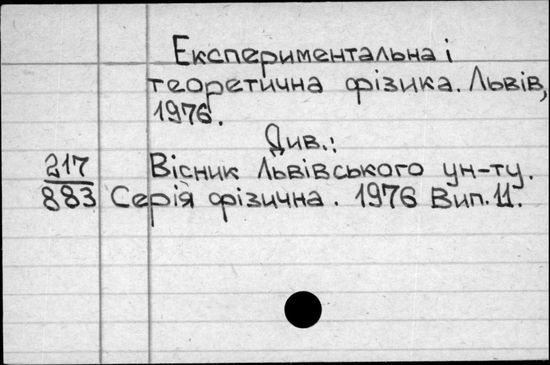 Експериментальна і
теоретична фізика. Львів,
1976.
Див.:
217 Вісник Львівського ун-ту.
883 Серія фізична. 1976 Вип. 11.